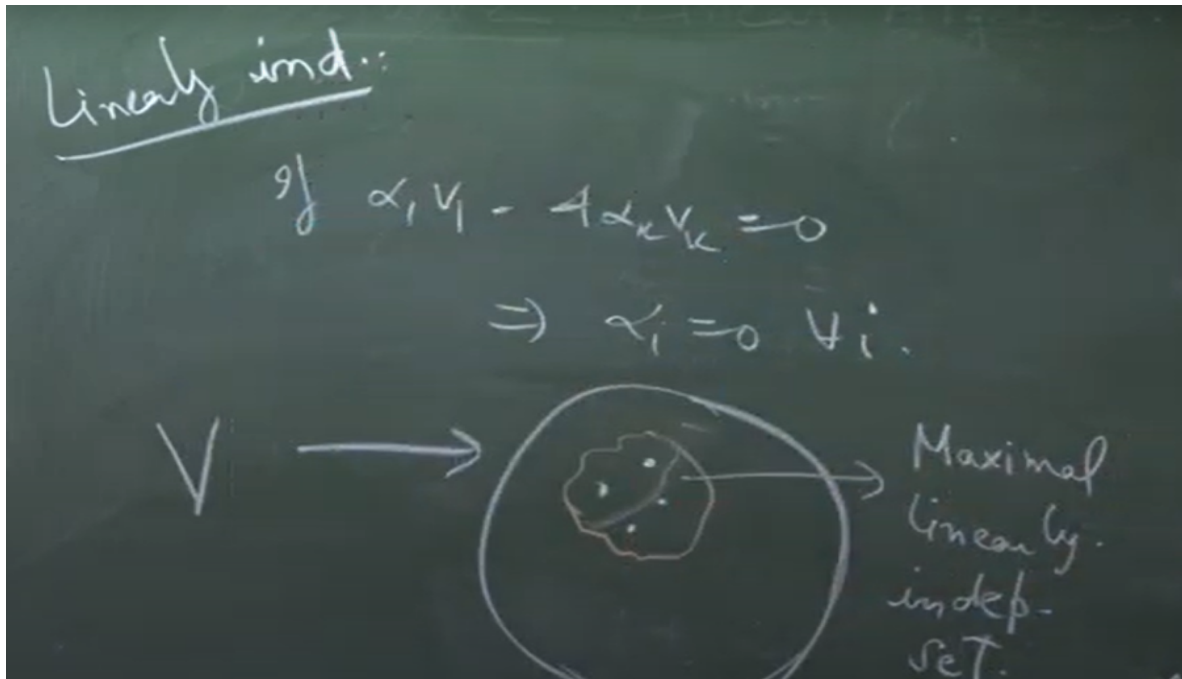 Linearly ind.:
If α₁ V₁ - + αₖ Vₖ = 0
⇒ αᵢ = 0 ∀ i.
V
Maximal
linearly.
indep-
set.